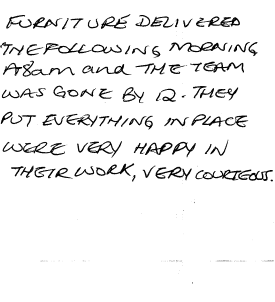 FURNITURE DELIVERED
THE FOLLOWING MORNING
AT 8am and THE TEAM
WAS GONE BY 12. THEY
PUT EVERYTHING IN PLACE
WERE VERY HAPPY IN
THEIR WORK, VERY COURTEOUS.